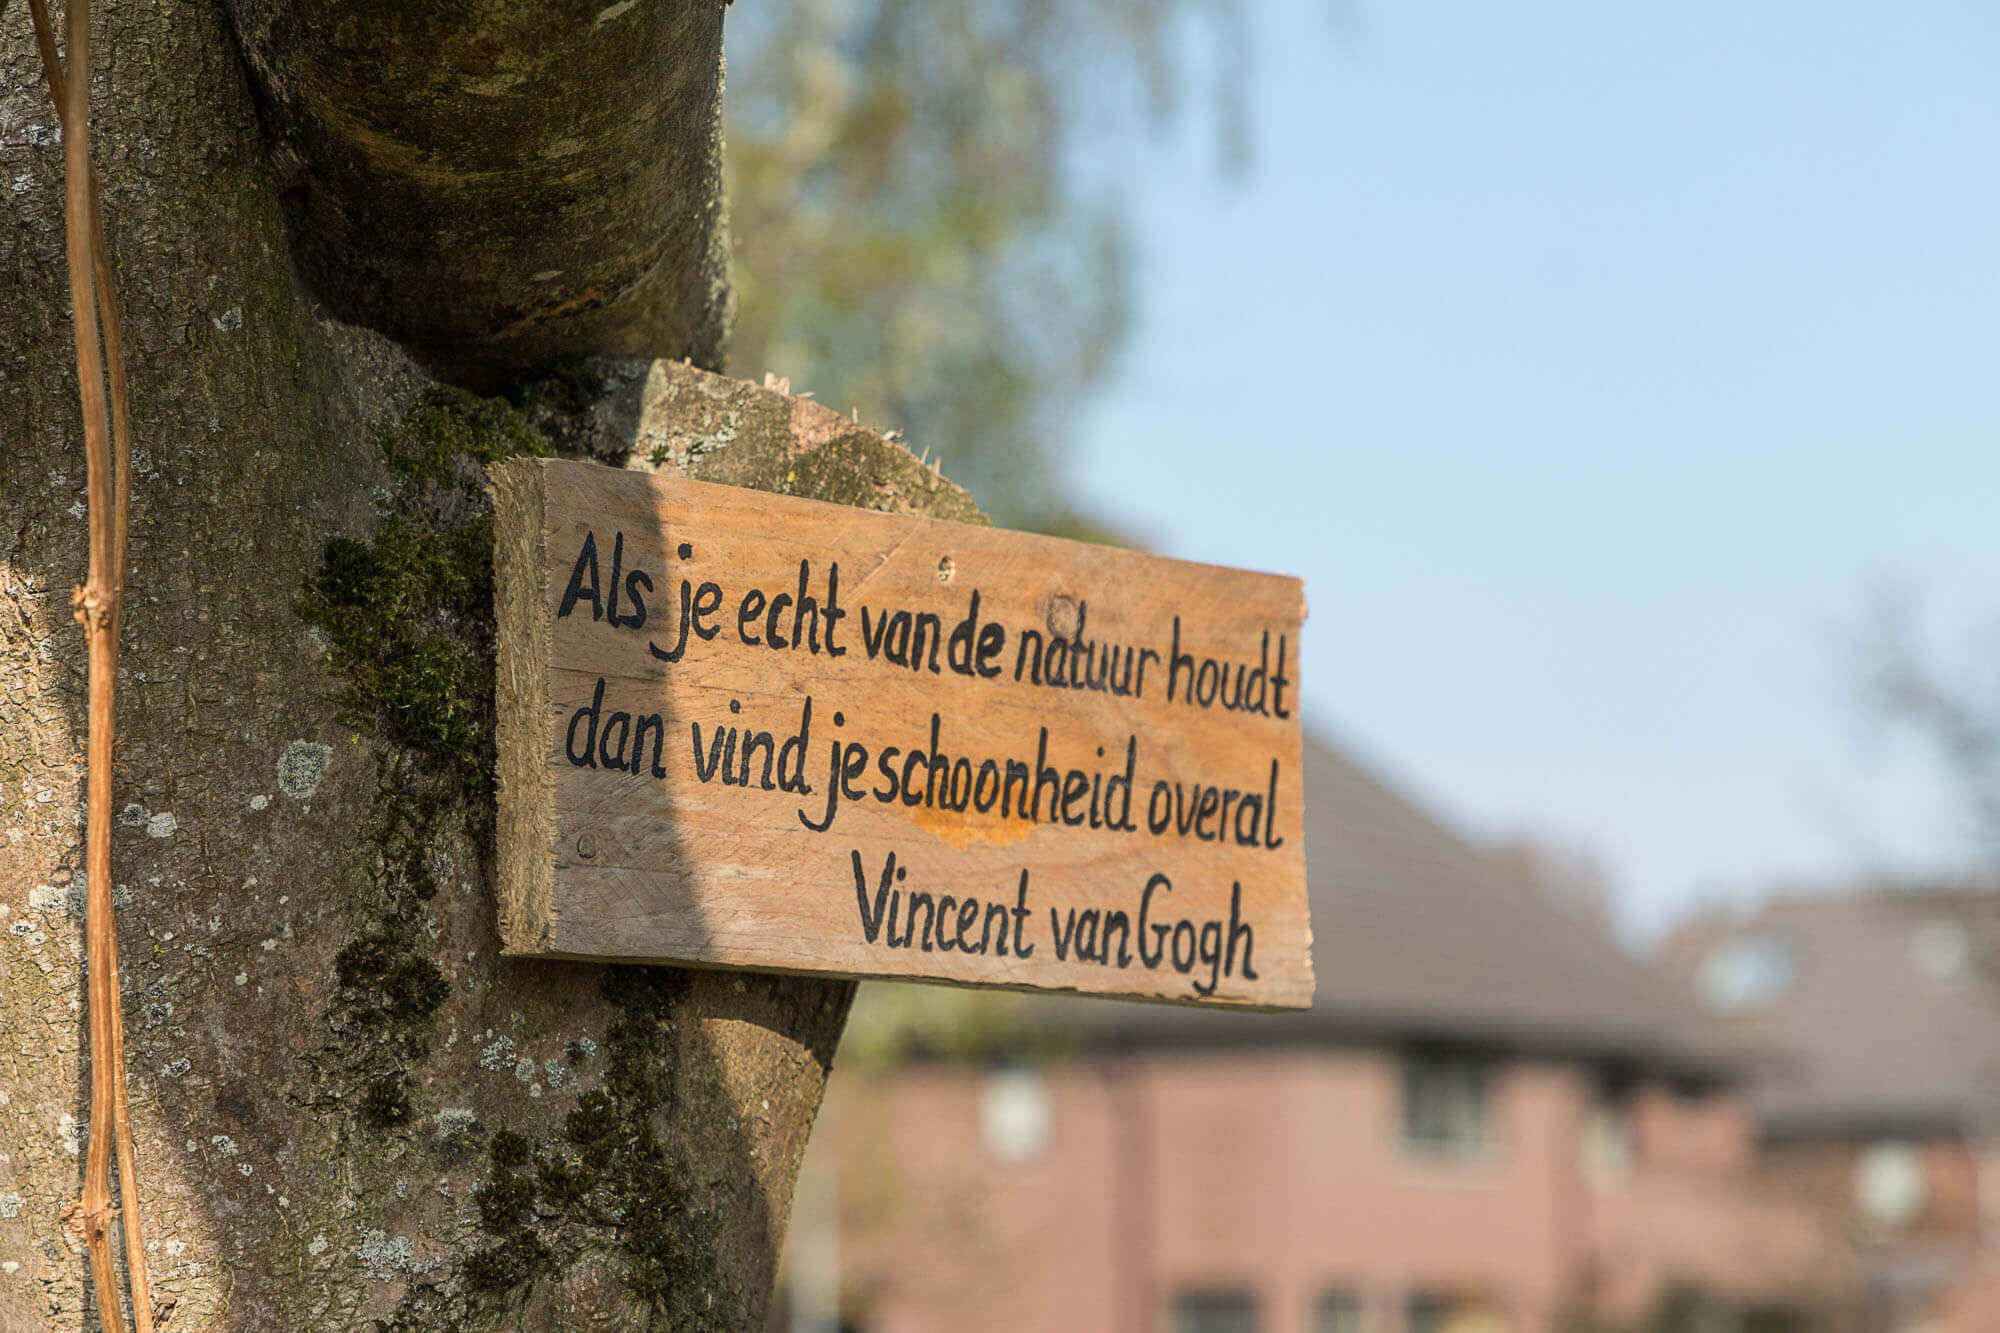 Als je echt van de natuur houdt
dan vind je schoonheid overal
Vincent van Gogh